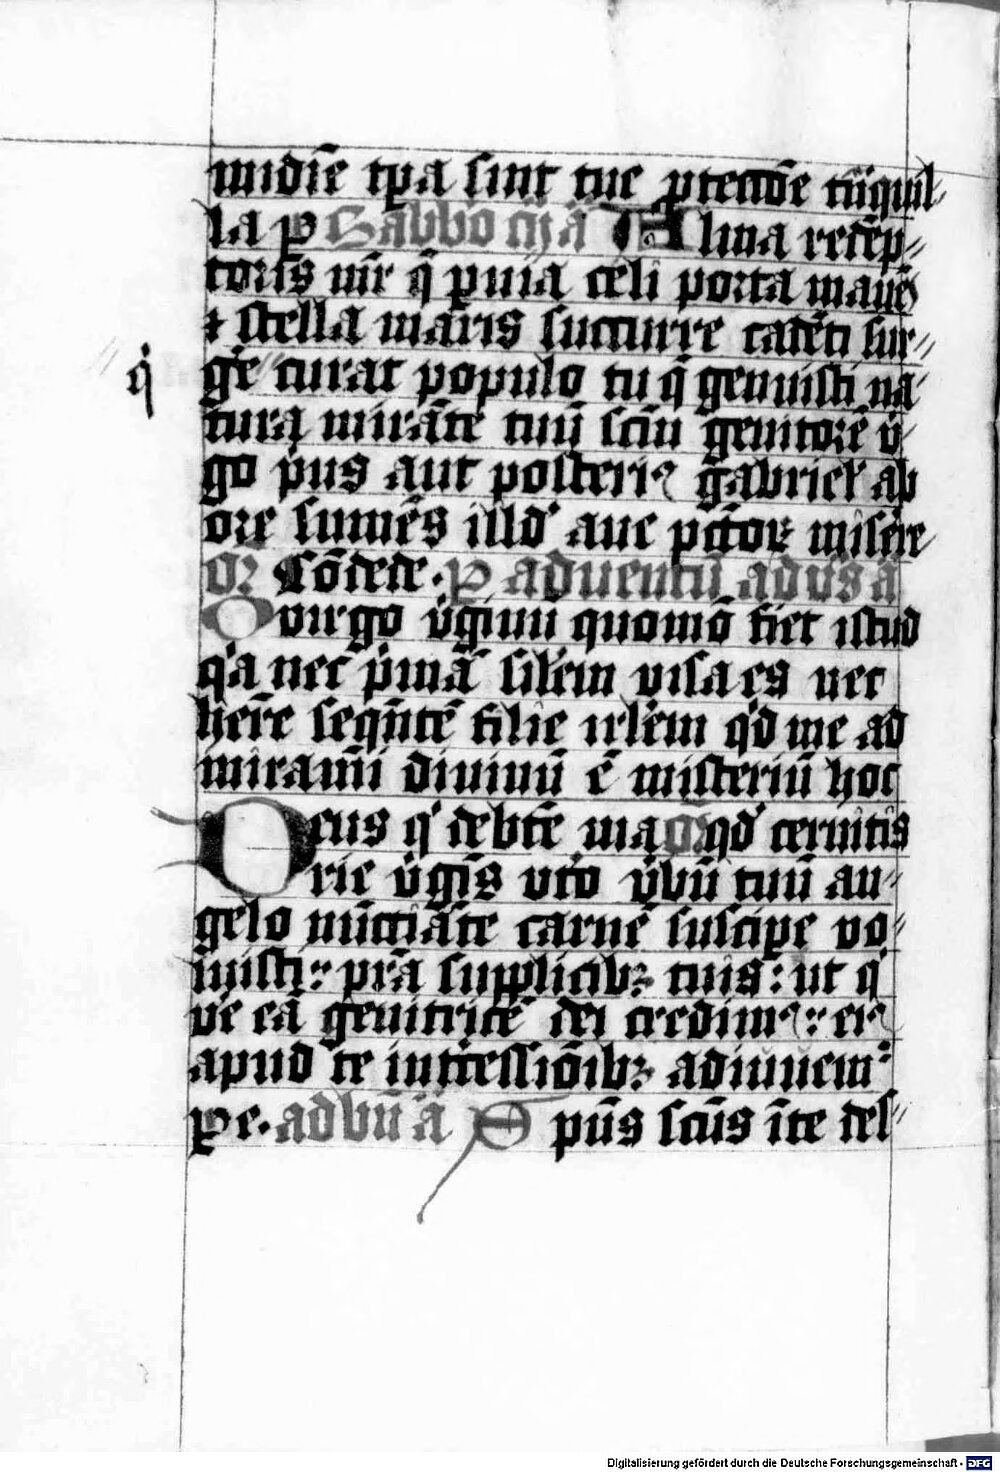 midiē tpa sint tue ptende tn̄quil⸗
la p Sabbo ciȷ ā Alma redēp⸗
toris mr̄ q̄ puia celi porta manēs
⁊ stella maris succurre cadēti sur⸗
ge curat populo tu q̄ genuisti na⸗
q̇
tura mirāte tuū scm̄ genitorē v̇⸗
go p̓us aut posteriꝰ gabriel' ab
ore sumēs illd' aue pctoꝝ misere
oꝝ Cōcede. P aduentū ad v̄s ā
O virgo v̇ginū quomō fiet istud
q'a nec p̓mā sil'em visa es nec
here seqūtē filie irl'em q'd me ad
miramī diuinū ē misteriū hoc
qd' cernitis
Deus q' de bt̄e maꝛ
rie v̇gīs vto v̇bū tuū an⸗
gelo nūctiāte carnē suscipe vo⸗
luisti: p̄ra supplicibꝫ tuis: ut q'
v̓e eā genitricē dei credimꝰ: eiꝰ
apud te int̓cessiōibꝫ adiuuem̓
Pe. ad bn̄ ā Sp̄us scūs ī te des⸗